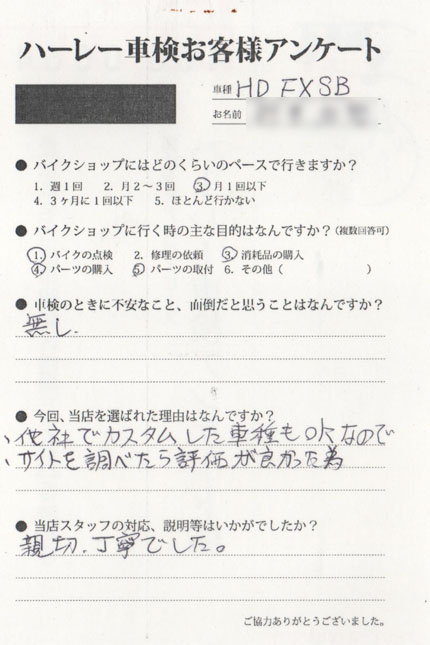 ハーレー車検お客様アンケート
車種 HD FXSB
お名前
● バイクショップにはどのくらいのペースで行きますか？
1. 週1回 2. 月2〜3回 ③ 月1回以下
4. 3ヶ月に1回以下 5. ほとんど行かない
● バイクショップに行く時の主な目的はなんですか？（複数回答可）
① バイクの点検 2. 修理の依頼 ③ 消耗品の購入
④ パーツの購入 ⑤ パーツの取付 6. その他（ ）
● 車検のときに不安なこと、面倒だと思うことはなんですか？
無し.
● 今回、当店を選ばれた理由はなんですか？
、他社でカスタムした車種もOKなので
、サイトを調べたら評価が良かった為
● 当店スタッフの対応、説明等はいかがでしたか？
親切、丁寧でした。
ご協力ありがとうございました。